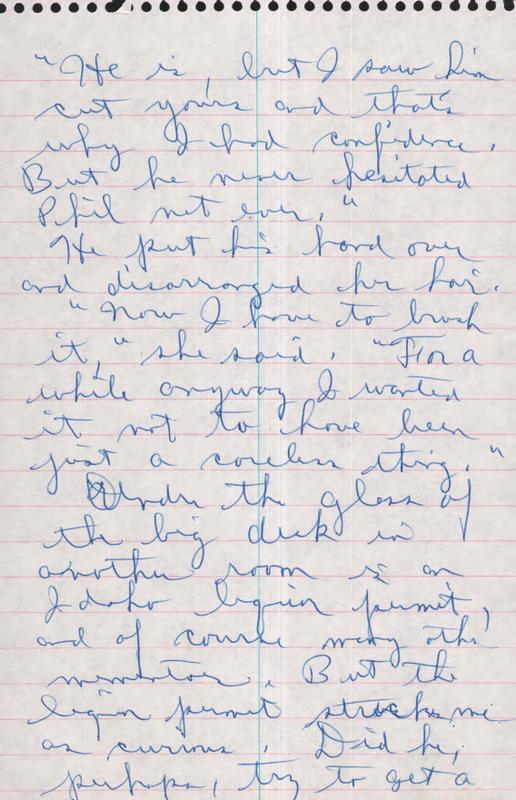 "He is, but I saw him
cut yours and that's
why I had confidence.
But he never hesitated
Phil not ever."
He put his hand over
and disarranged her hair.
"Now I have to brush
it," she said. "For a
while anyway I wanted
it not to have been
just a careless thing."
Under the glass of
the big desk in
another room is an
Idaho liquor permit,
and of course many other
mementoes. But the
liquor permit struck me
as curious. Did he,
perhaps, try to get a